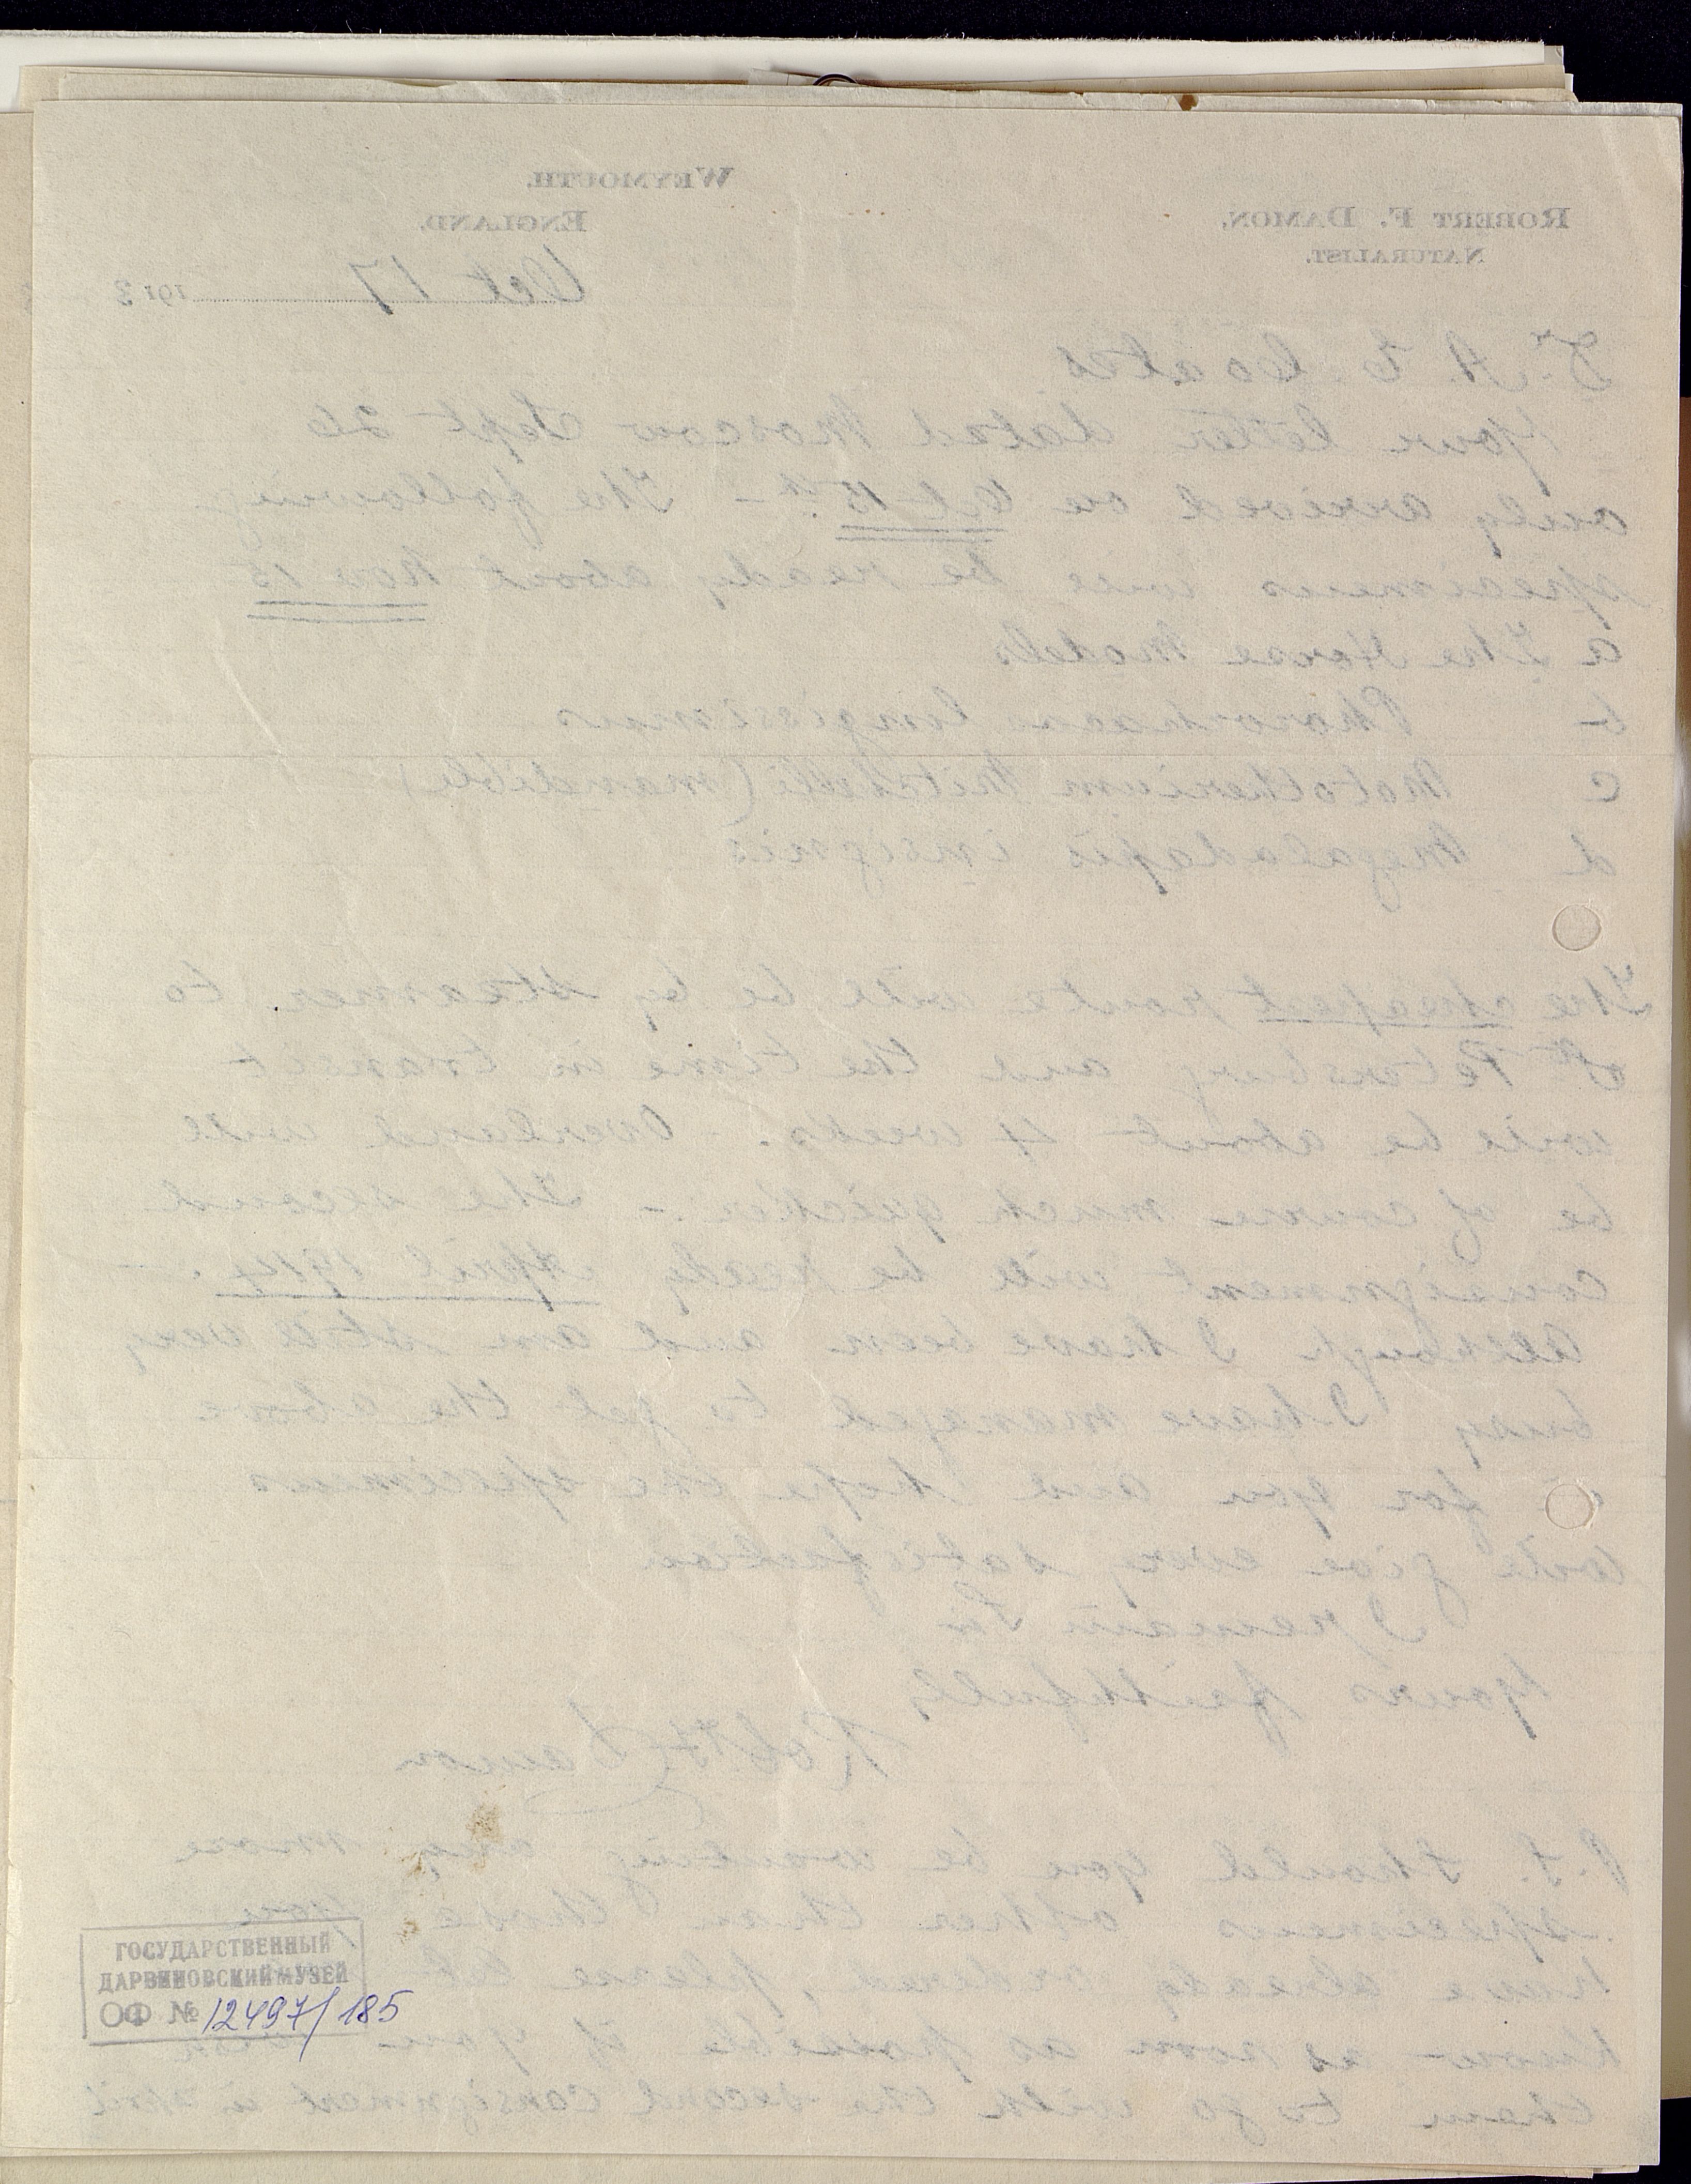 ROBERT F. DAMON,
NATURALIST.
WEYMOUTH.
ENGLAND.
Oct 17 1913
Dr A. C. Coates
Your letter dated Moscow Sept 26
only arrived on Oct 15th - The following
specimens will be ready about Nov 15
a The Horse Models
b Phororhacos longissimus
c Nototherium Mitchelli (mandible)
d Megaladapis insignis
The cheapest route will be by steamer to
St Petersburg and the time in transit
will be about 4 weeks. - Overland will
be of course much quicker - The second
consignment will be ready April 1914. -
Although I have been and am still very
busy I have managed to get the above
for you and hope the specimens
will give every satisfaction
I remain Sir
Yours faithfully
Robt F Damon
P.S. Should you be wanting any more
specimens other than those you
have already ordered, please let
know as soon as possible if you wish
them to go with the second consignment in April
ГОСУДАРСТВЕННЫЙ
ДАРВИНОВСКИЙ МУЗЕЙ
ОФ № 12497/185